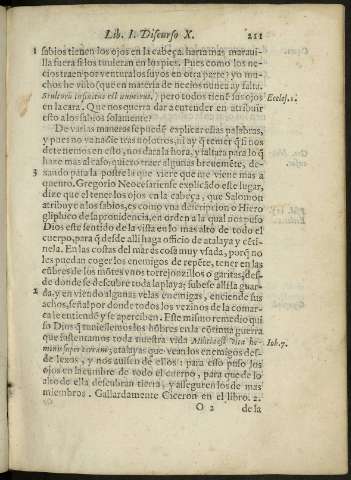 Lib. I. Discurso X. 211
1 sabios tienen los ojos en la cabeça. harta mas maraui-
lla fuera si los tuuieran en los pies. Pues como los ne-
cios traen por ventura los suyos en otra parte? yo mu-
chos he visto (que en materia de necios nunca ay falta.
Stultorũ infinitus est numerus,) pero todos tiene sus ojos
Eccles. 1.
en la cara. Que nos querra dar a entender en atribuir
esto a los sabios solamente?
De varias maneras se puedẽ explicar estas palabras,
y pues no va nadie tras nosotros, ni ay q̃ temer q̃ si nos
detenemos en esto, nos dara la hora, y faltara para lo q̃
haze mas al caso, quiero traer algunas breuemẽte, de-
3 xando para la postre la que viere que me viene mas a
quento. Gregorio Neocesariense explicãdo este lugar,
dize que el tener los ojos en la cabeça, que Salomon
atribuye a los sabios, es como vna descripcion o Hiero
gliphico de la prouidencia, en orden a la qual nos puso
Dios este sentido de la vista en lo mas alto de todo el
cuerpo, para q̃ desde alli haga officio de atalaya y cẽti-
nela. En las costas del mar es cosa muy vsada, porq̃ no
les puedan coger los enemigos de repẽte, tener en las
cũbres de los mõtes vnos torrejonzillos o garitas, des-
de donde se descubre toda la playa; subese alli la guar-
2 da, y en viendo algunas velas enemigas, enciende sus
achos, señal por donde todos los vezinos de la comar-
ca le entiendẽ y se aperciben. Este mismo remedio qui
so Dios q̃ tuuiessemos los hõbres en la cõtinua guerra
que sustentamos toda nuestra vida Militia est vita ho-
Iob. 7.
minis super terram; atalayas que vean los enemigos des-
de lexos, y nos auisen de ellos: para esto puso los
ojos en la cumbre de todo el cuerpo, para que de lo
alto de ella descubran tierra, y asseguren los de mas
miembros. Gallardamente Ciceron en el libro. 2.
O 2 de la